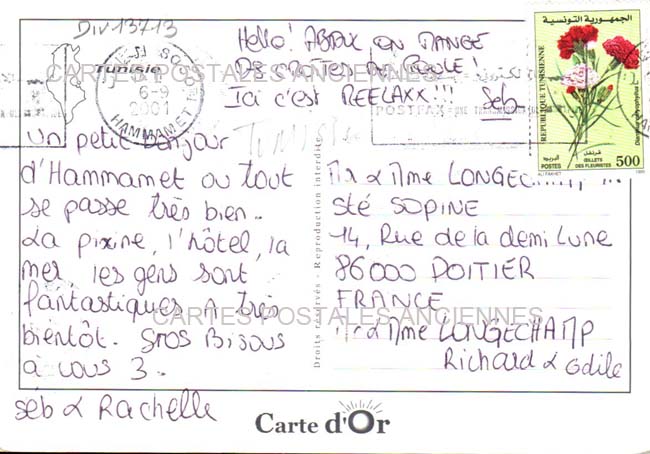 Div 13713
Hello!
Ici c'est REELAXX!!!
Seb
Tunisie
6-9
2001
HAMMAMET
الجمهورية التونسية
REPUBLIQUE TUNISIENNE
ŒILLETS
DES FLEURISTES
POSTES
500
CARTES POSTALES ANCIENNES
Un petit bonjour
d'Hammamet ou tout
se passe très bien..
La pixine, l'hôtel, la
mer, les gens sont
fantastiques. A très
bientôt. Gros Bisous
à vous 3.
Seb & Rachelle
Droits réservés - Reproduction interdite
Mr & Mme LONGECHAMP
Sté SOPINE
14, Rue de la demi Lune
86000 POITIER
FRANCE
CARTES POSTALES ANCIENNES
Mr & Mme LONGECHAMP
Richard & Odile
Carte d'Or